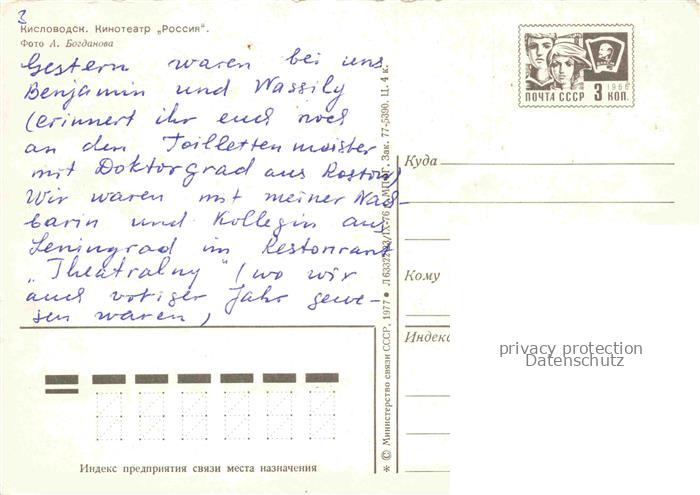 3
Кисловодск. Кинотеатр „Россия".
Фото А. Богданова
Gestern waren bei uns
Benjamin und Wassily
(erinnert ihr euch noch
an den Toilettenmeister
mit Doktorgrad aus Rostow)
Wir waren mit meiner Nach-
barin und Kollegin aus
Leningrad im Restorant
„Theatralny" (wo wir
auch voriger Jahr gewe-
sen waren,
ПОЧТА СССР 3 КОП.
1966
Куда
Кому
Индекс
privacy protection
Datenschutz
Индекс предприятия связи места назначения
* © Министерство связи СССР, 1977 ● Зак. 77-5390. Ц. 4 к.